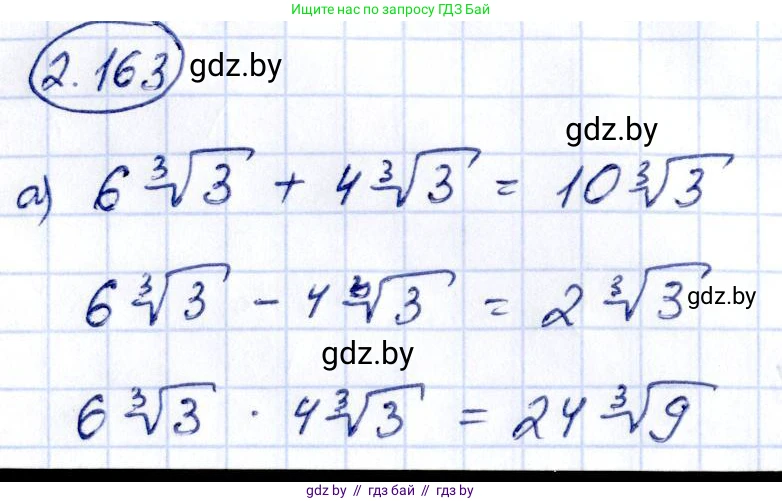 Ищите нас по запросу ГДЗ Бай
2.163 gdz.by
gdz.by
а) 6∛3 + 4∛3 = 10∛3
6∛3 - 4∛3 = 2∛3 gdz.by
gdz.by
6∛3 · 4∛3 = 24∛9
gdz.by // гдз бай // гдз by